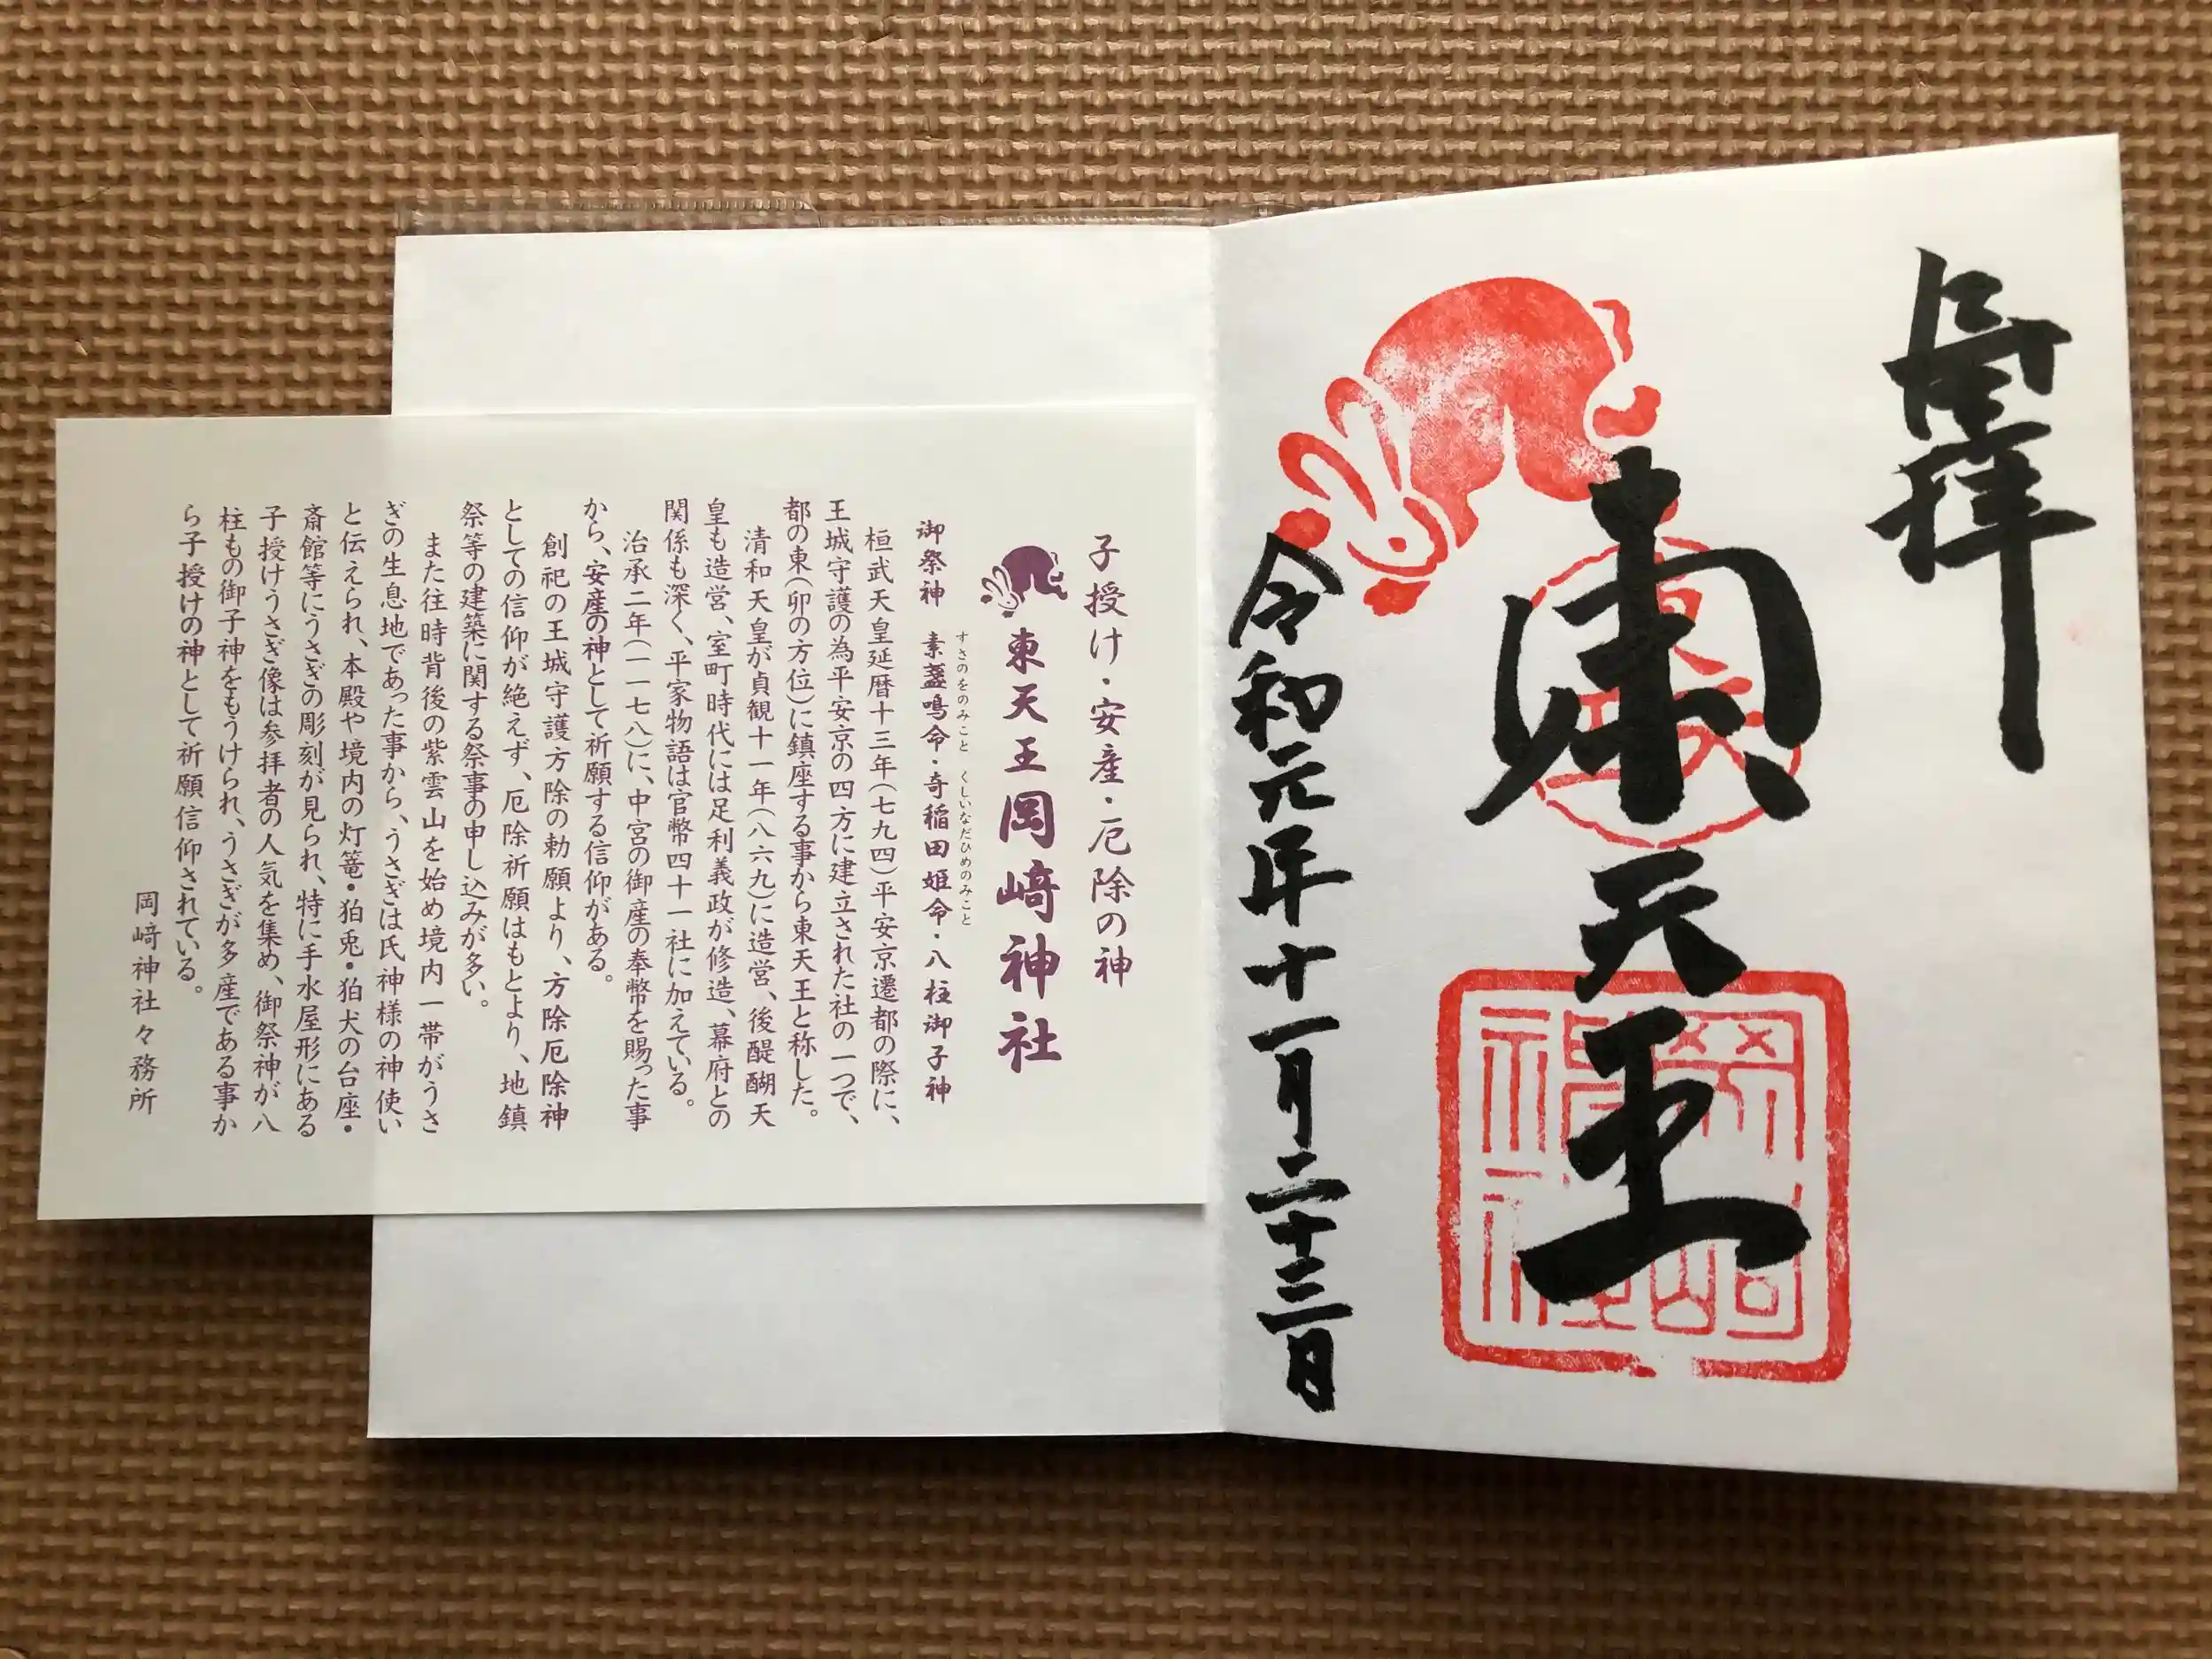 奉拝
東天王
令和元年十一月二十三日
岡崎神社
子授け・安産・厄除の神
東天王岡﨑神社
すさのをのみこと くしいなだひめのみこと
御祭神 素盞鳴命・奇稲田姫命・八柱御子神
桓武天皇延暦十三年(七九四)平安京遷都の際に、
王城守護の為平安京の四方に建立された社の一つで、
都の東(卯の方位)に鎮座する事から東天王と称した。
清和天皇が貞観十一年(八六九)に造営、後醍醐天
皇も造営、室町時代には足利義政が修造、幕府との
関係も深く、平家物語は官幣四十一社に加えている。
治承二年(一一七八)に、中宮の御産の奉幣を賜った事
から、安産の神として祈願する信仰がある。
創祀の王城守護方除の勅願より、方除厄除神
としての信仰が絶えず、厄除祈願はもとより、地鎮
祭等の建築に関する祭事の申し込みが多い。
また往時背後の紫雲山を始め境内一帯がうさ
ぎの生息地であった事から、うさぎは氏神様の神使い
と伝えられ、本殿や境内の灯篭・狛兎・狛犬の台座・
斎館等にうさぎの彫刻が見られ、特に手水屋形にある
子授けうさぎ像は参拝者の人気を集め、御祭神が八
柱もの御子神をもうけられ、うさぎが多産である事か
ら子授けの神として祈願信仰されている。
岡﨑神社々務所